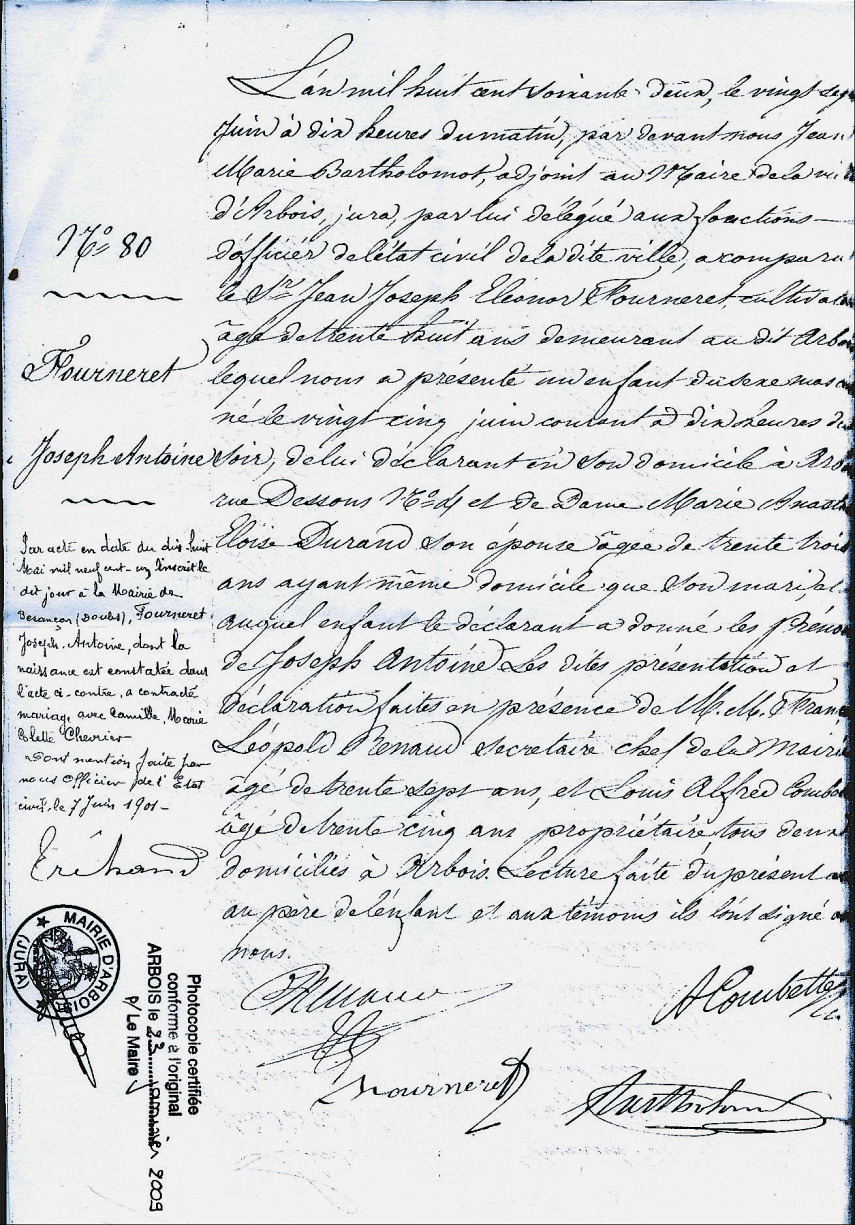 Nº 80
Fourneret
Joseph Antoine
Par acte en date du dix-huit
Mai mil neuf cent-un inscrit le
dit jour à la Mairie de
Besançon (Doubs), Fourneret
Joseph-Antoine, dont la
naissance est constatée dans
l'acte ci-contre, a contracté
mariage avec Camille, Marie
Colette Chevrier
Dont mention faite par
nous Officier de l'Etat
civil, le 7 Juin 1901-
L'an mil huit cent soixante-deux, le vingt sep
Juin à dix heures du matin, par devant nous Jean
Marie Bartholomot, adjoint au Maire de la vi
d'Arbois, jura, par lui délégué aux fonctions
d'officier de l'état civil de la dite ville, a comparu
le Sr Jean Joseph Eléonor Fourneret, cultivat
âgé de trente huit ans demeurant au dit Arbo
lequel nous a présenté un enfant du sexe masc
né le vingt cinq juin courant à dix heures du
soir, de lui déclarant en son domicile à Arbo
rue Dessous Nº 4 et de Dame Marie Anast
Eloïse Durand son épouse âgée de trente trois
ans ayant même domicile que son mari, et
auquel enfant le déclarant a donné les prénom
de Joseph Antoine. Les dites présentation et
déclaration faites en présence de M.M. Franç
Léopold Renaud secrétaire chef de la Mairie
âgé de trente sept ans, et Louis Alfred Combe
âgé de trente cinq ans propriétaire, tous deux
domiciliés à Arbois. Lecture faite du présent a
au père de l'enfant et aux témoins ils l'ont signé a
nous.
ACombette
Fourneret
MAIRIE D'ARBOIS
(JURA)
Photocopie certifiée
conforme à l'original
ARBOIS le 23 janvier 2009
p/ Le Maire